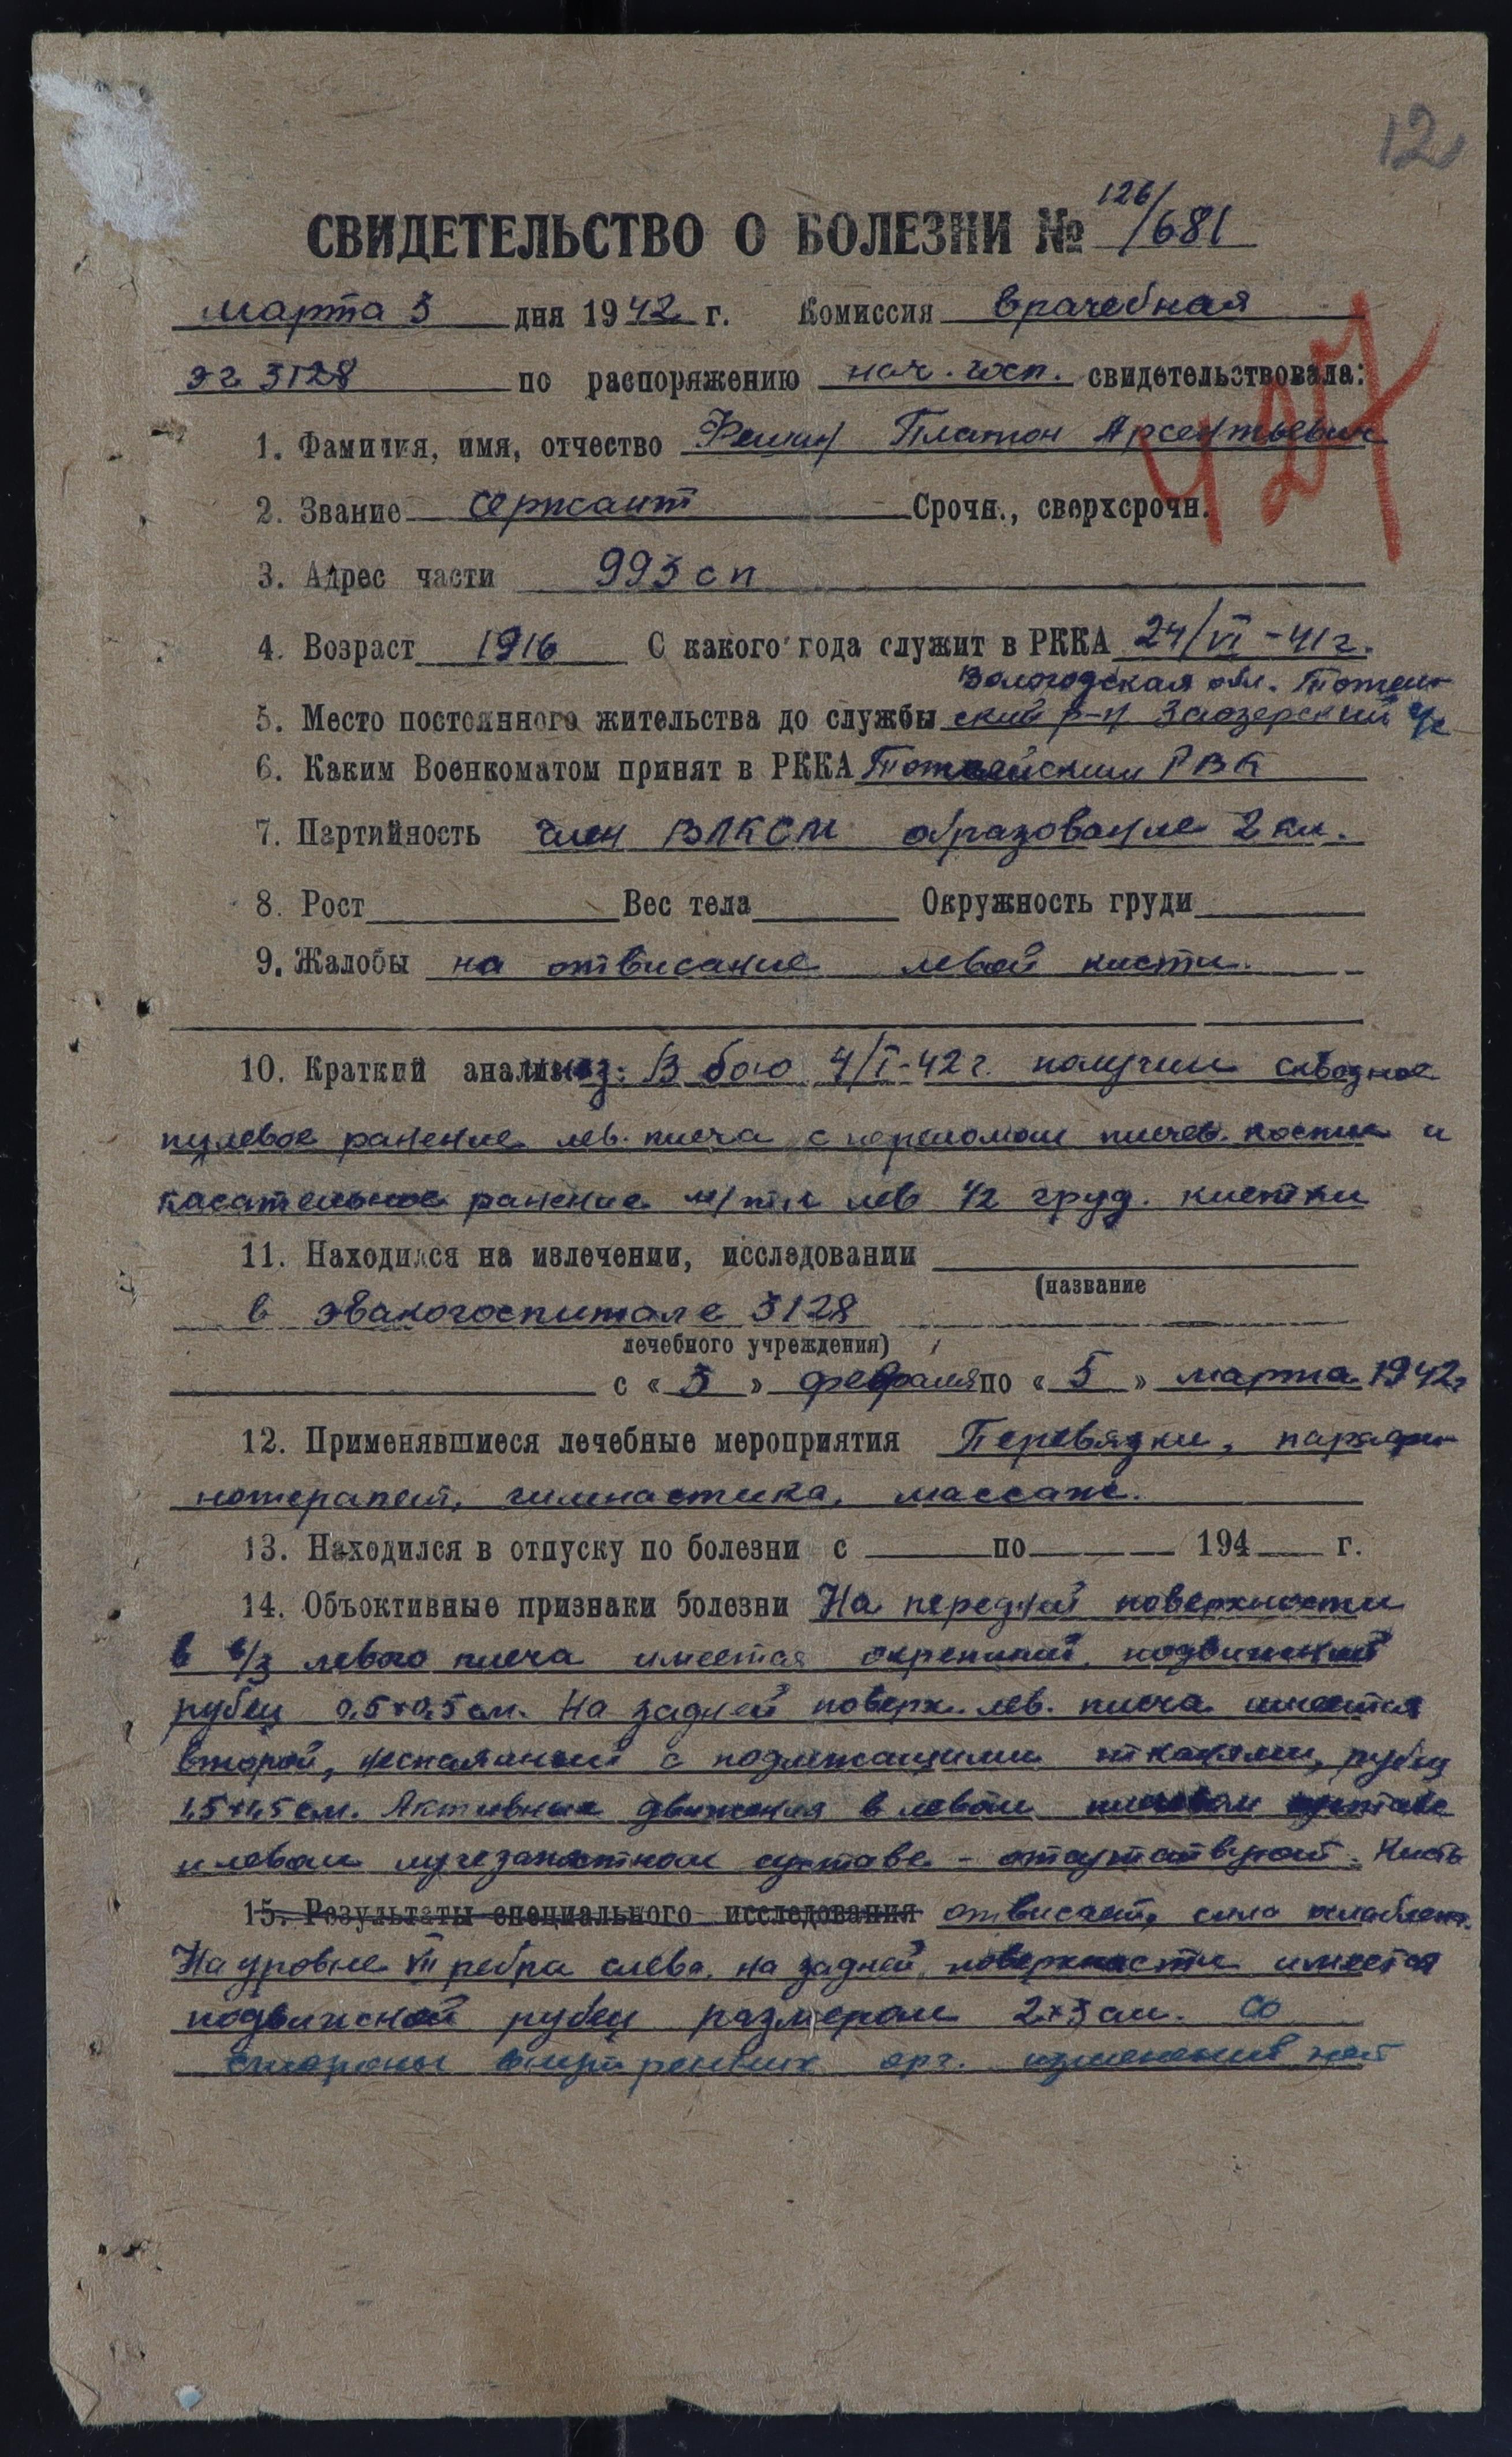 12
СВИДЕТЕЛЬСТВО О БОЛЕЗНИ № 126/681
марта 5 дня 1942 г. Комиссия врачебная
эг 3128 по распоряжению нач. госп. свидетельствовала:
427
1. Фамилия, имя, отчество Платон Арсентьевич
2. Звание сержант Срочн., сверхсрочн.
3. Адрес части 993 сп
4. Возраст 1916 С какого года служит в РККА 24/VI-41 г.
Вологодская обл. Тотем-
5. Место постоянного жительства до службы ский р-н Заозерский с/с
6. Каким Военкоматом принят в РККА РВК
7. Партийность член ВЛКСМ образование 2 кл.
8. Рост Вес тела Окружность груди
9. Жалобы на отвисание левой кисти.
10. Краткий анамнез: В бою 4/I-42 г. получил сквозное
пулевое ранение лев. плеча с переломом плечев. кости и
касательное ранение м/тк лев 1/2 груд. клетки
11. Находился на излечении, исследовании
(название
в эвакогоспитале 3128
лечебного учреждения)
с « 5 » февраля по « 5 » марта 1942 г
12. Применявшиеся лечебные мероприятия Перевязки, парафи-
нотерапия, гимнастика, массаж.
13. Находился в отпуску по болезни с по 194 г.
14. Объективные признаки болезни На передней поверхности
в в/з левого плеча имеется окрепший, подвижный
рубец 0,5×0,5 см. На задней поверх. лев. плеча имеется
второй, неспаянный с подлежащими тканями, рубец
1,5×1,5 см. Активные движения в левом плечевом суставе
и левом лучезапястном суставе - отсутствуют. Кисть
15. Результаты специального исследования отвисает, сила ослаблена.
На уровне VII ребра слева, на задней поверхности имеется
подвижной рубец размером 2×3 см. Со
стороны внутренних орг. изменений нет